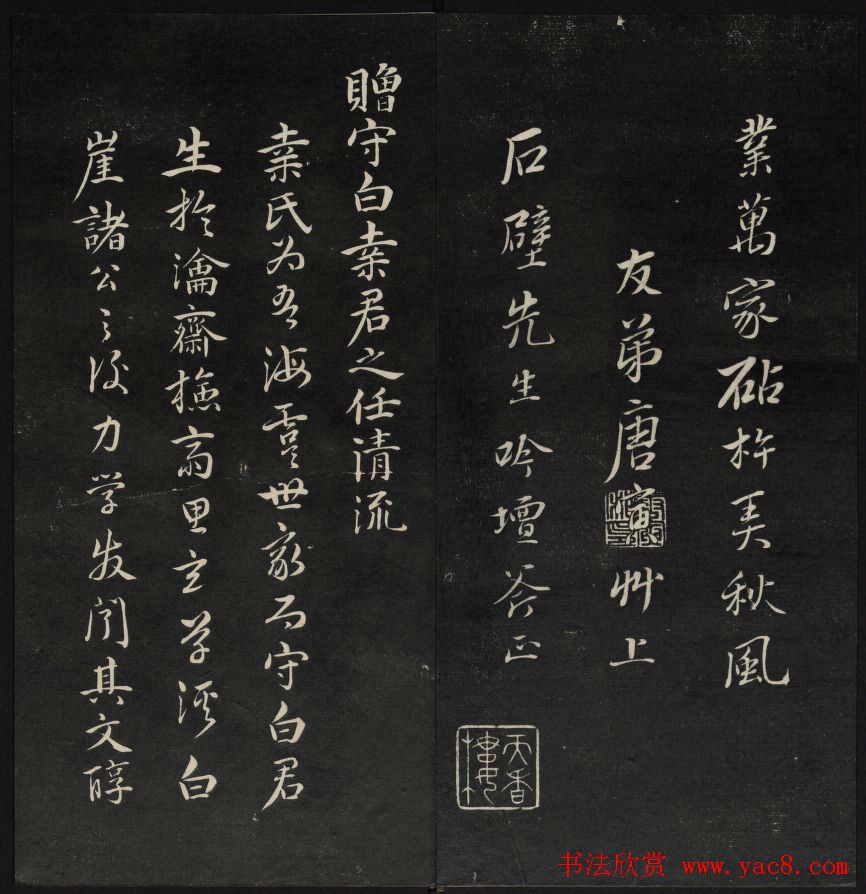 業萬家砧杵弄秋風
友弟唐寅艸上
石壁先生吟壇斧正
天香樓
贈守白桒君之任清流
桒氏为吾海虞世家而守白君
生於瀹齋橅斋思玄学溪白
崖諸公之後力学发闻其文醇
书法欣赏 www.yac8.com